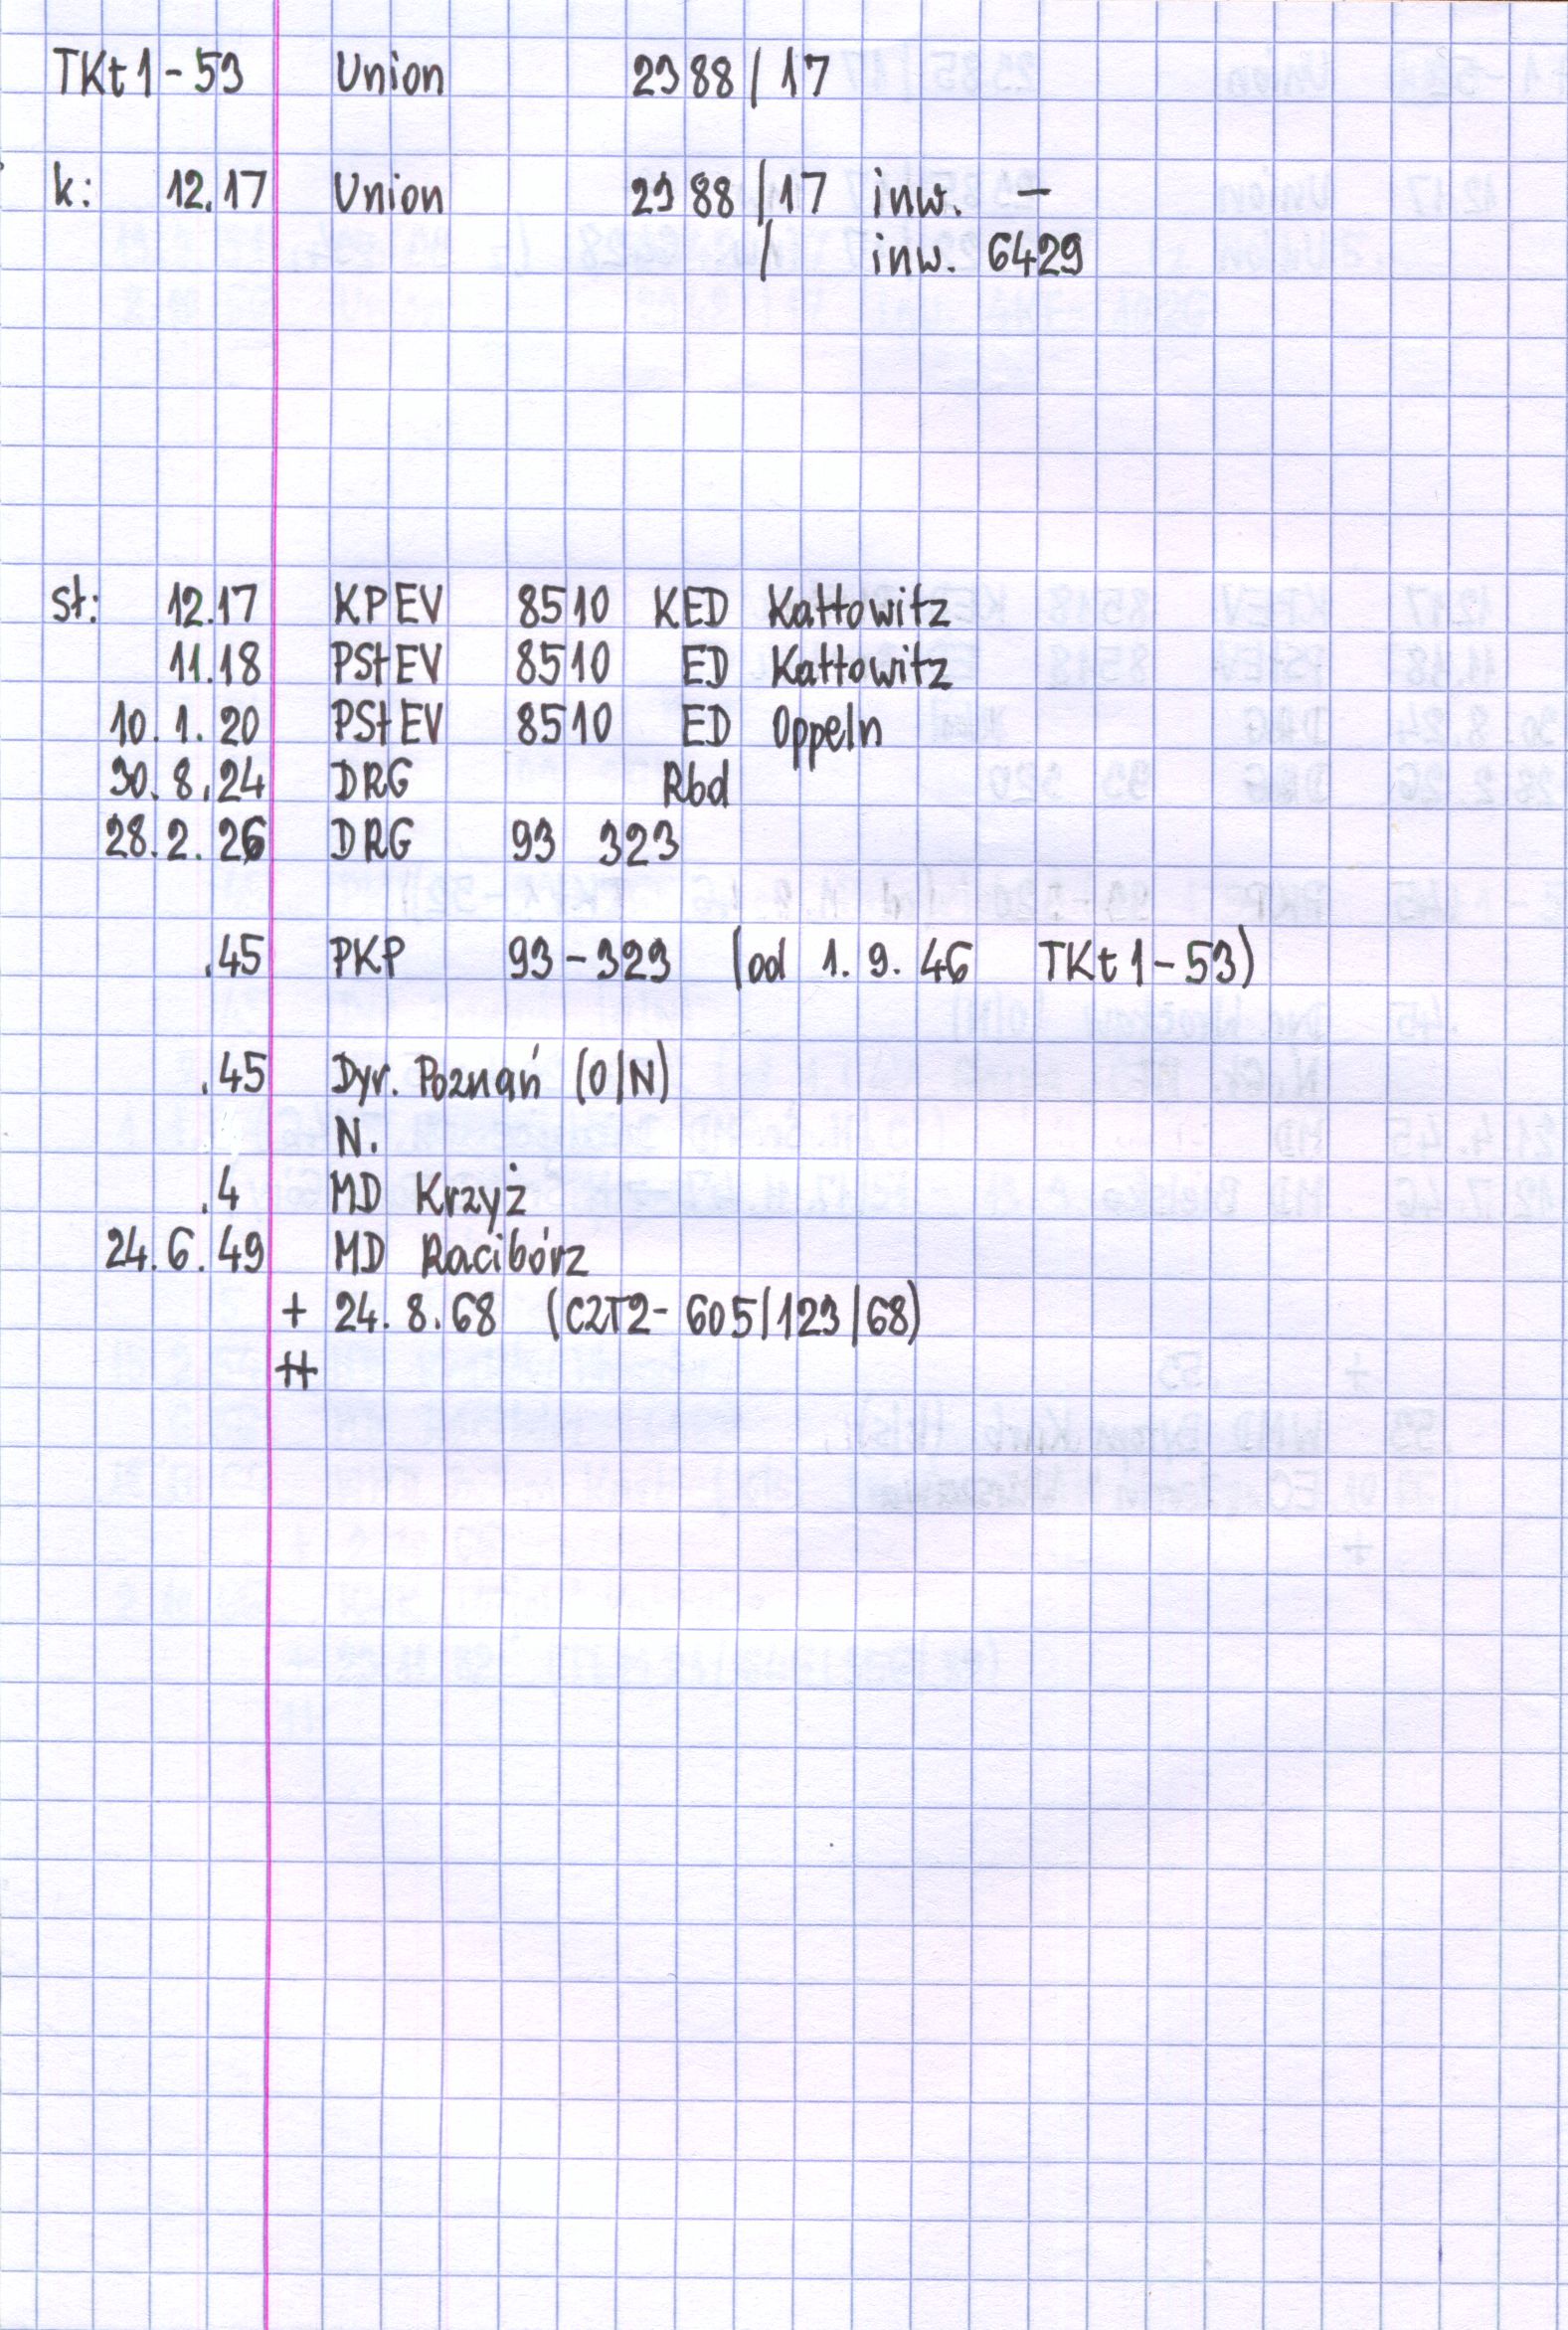 TKt1-53 Union 2388/17
k: 12.17 Union 2388/17 inw. -
/ inw. 6429
st: 12.17 KPEV 8510 KED Kattowitz
11.18 PStEV 8510 ED Kattowitz
10.1.20 PStEV 8510 ED Oppeln
30.8.24 DRG Rbd
28.2.26 DRG 93 323
.45 PKP 93-323 (od 1.9.46 TKt1-53)
.45 Dyr. Poznań (O/N)
N.
.4 MD Krzyż
24.6.49 MD Racibórz
+ 24.8.68 (CZT2-605/123/68)
++